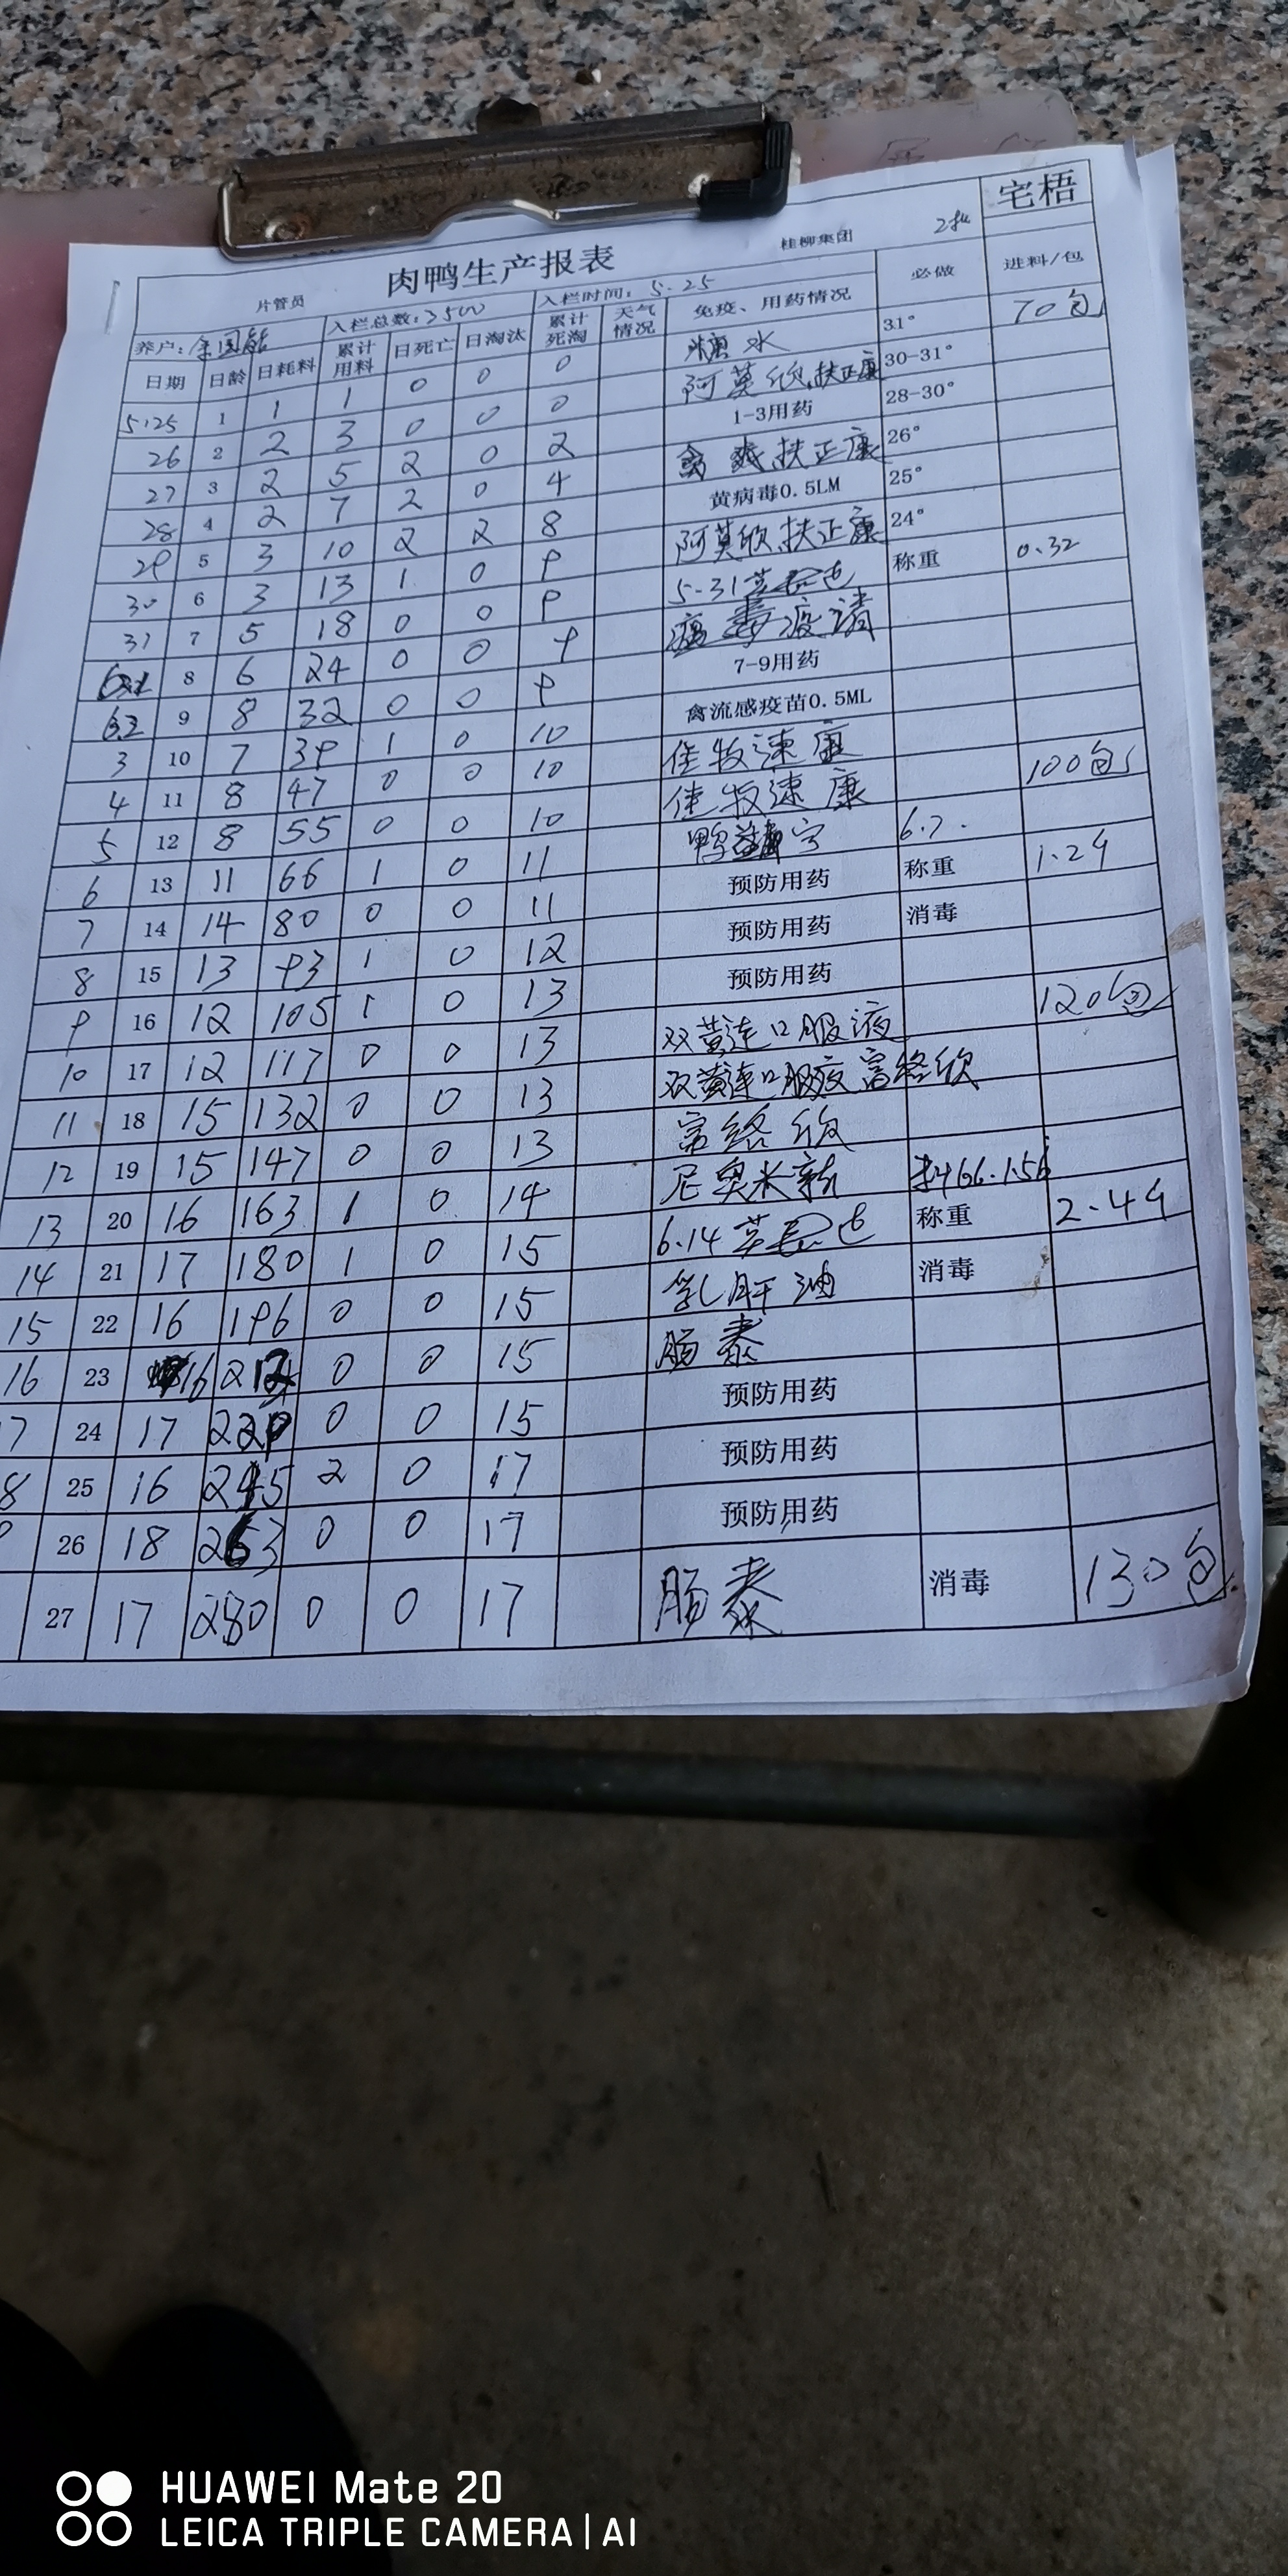 宅梧
肉鸭生产报表 桂柳集团 2批
片管员
养户: 入栏总数:3500 入栏时间: 5.25 必做 进料/包
日期 日龄 日耗料 累计用料 日死亡 日淘汰 累计死淘 天气情况 免疫、用药情况
5.25 1 1 1 0 0 0 糖水 31° 70包
26 2 2 3 0 0 0 阿莫欣,扶正康 30-31°
27 3 2 5 2 0 2 1-3用药 28-30°
28 4 2 7 2 0 4 扶正康 26°
29 5 3 10 2 2 8 黄病毒0.5LM 25°
30 6 3 13 1 0 9 阿莫欣,扶正康 24°
31 7 5 18 0 0 9 5-31 称重 0.32
8 6 24 0 0 9 病毒疫清
6.2 9 8 32 0 0 9 7-9用药
3 10 7 39 1 0 10 禽流感疫苗0.5ML
4 11 8 47 0 0 10 佳牧速康
5 12 8 55 0 0 10 佳牧速康 100包
6 13 11 66 1 0 11 鸭 6.7.
7 14 14 80 0 0 11 预防用药 称重 1.24
8 15 13 93 1 0 12 预防用药 消毒
9 16 12 105 1 0 13 预防用药
10 17 12 117 0 0 13 双黄连口服液 120包
11 18 15 132 0 0 13 双黄连口服液 富络欣
12 19 15 147 0 0 13 富络欣
13 20 16 163 1 0 14 尼奥米新
14 21 17 180 1 0 15 6.14 称重 2.44
15 22 16 196 0 0 15 乳肝油 消毒
16 23 16 212 0 0 15 肠泰
17 24 17 229 0 0 15 预防用药
8 25 16 245 2 0 17 预防用药
26 18 263 0 0 17 预防用药
27 17 280 0 0 17 肠泰 消毒 130包
HUAWEI Mate 20
LEICA TRIPLE CAMERA | AI